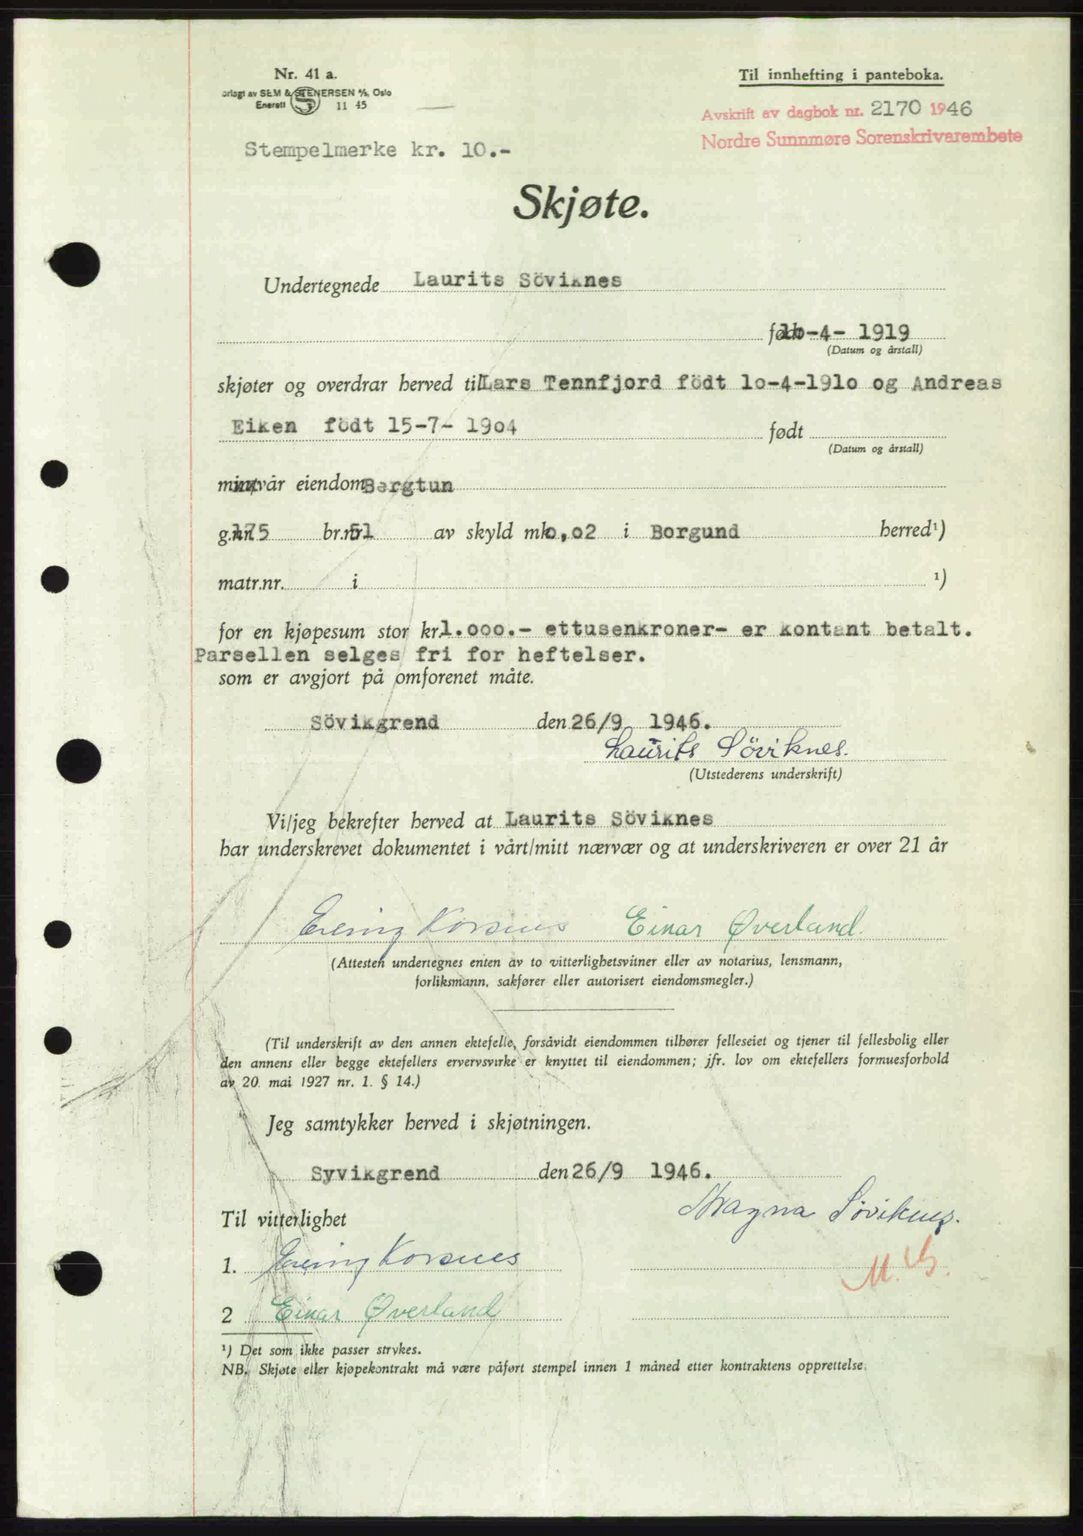 Nr. 41 a.
Til innhefting i panteboka.
orlagt av SEM & STENERSEN A/S, Oslo
Enerett S 11 45
Avskrift av dagbok nr. 2170 1946
Nordre Sunnmøre Sorenskrivarembete
Stempelmerke kr. 10.-
Skjøte.
Undertegnede Laurits Söviknes
født -4- 1919
(Datum og årstall)
skjøter og overdrar herved til Lars Tennfjord födt 1o-4-191o og Andreas
Eiken födt 15-7- 19o4 født
(Datum og årstall)
vår eiendom Bergtun
g.nr. 175 br.nr. 51 av skyld mk. o,o2 i Borgund herred¹)
matr.nr. i ¹)
for en kjøpesum stor kr. 1.ooo.- ettusenkroner- er kontant betalt.
Parsellen selges fri for heftelser.
som er avgjort på omforenet måte.
Sövikgrend den 26/9 1946.
Laurits Söviknes.
(Utstederens underskrift)
Vi/jeg bekrefter herved at Laurits Söviknes
har underskrevet dokumentet i vårt/mitt nærvær og at underskriveren er over 21 år
Erling Korsnes Einar Øverland.
(Attesten undertegnes enten av to vitterlighetsvitner eller av notarius, lensmann,
forliksmann, sakfører eller autorisert eiendomsmegler.)
(Til underskrift av den annen ektefelle, forsåvidt eiendommen tilhører felleseiet og tjener til fellesbolig eller
den annens eller begge ektefellers ervervsvirke er knyttet til eiendommen; jfr. lov om ektefellers formuesforhold
av 20. mai 1927 nr. 1. § 14.)
Jeg samtykker herved i skjøtningen.
Syvikgrend den 26/9 1946.
Magna Söviknes.
Til vitterlighet
1. Erling Korsnes
2 Einar Øverland
¹) Det som ikke passer strykes.
NB. Skjøte eller kjøpekontrakt må være påført stempel innen 1 måned etter kontraktens opprettelse.